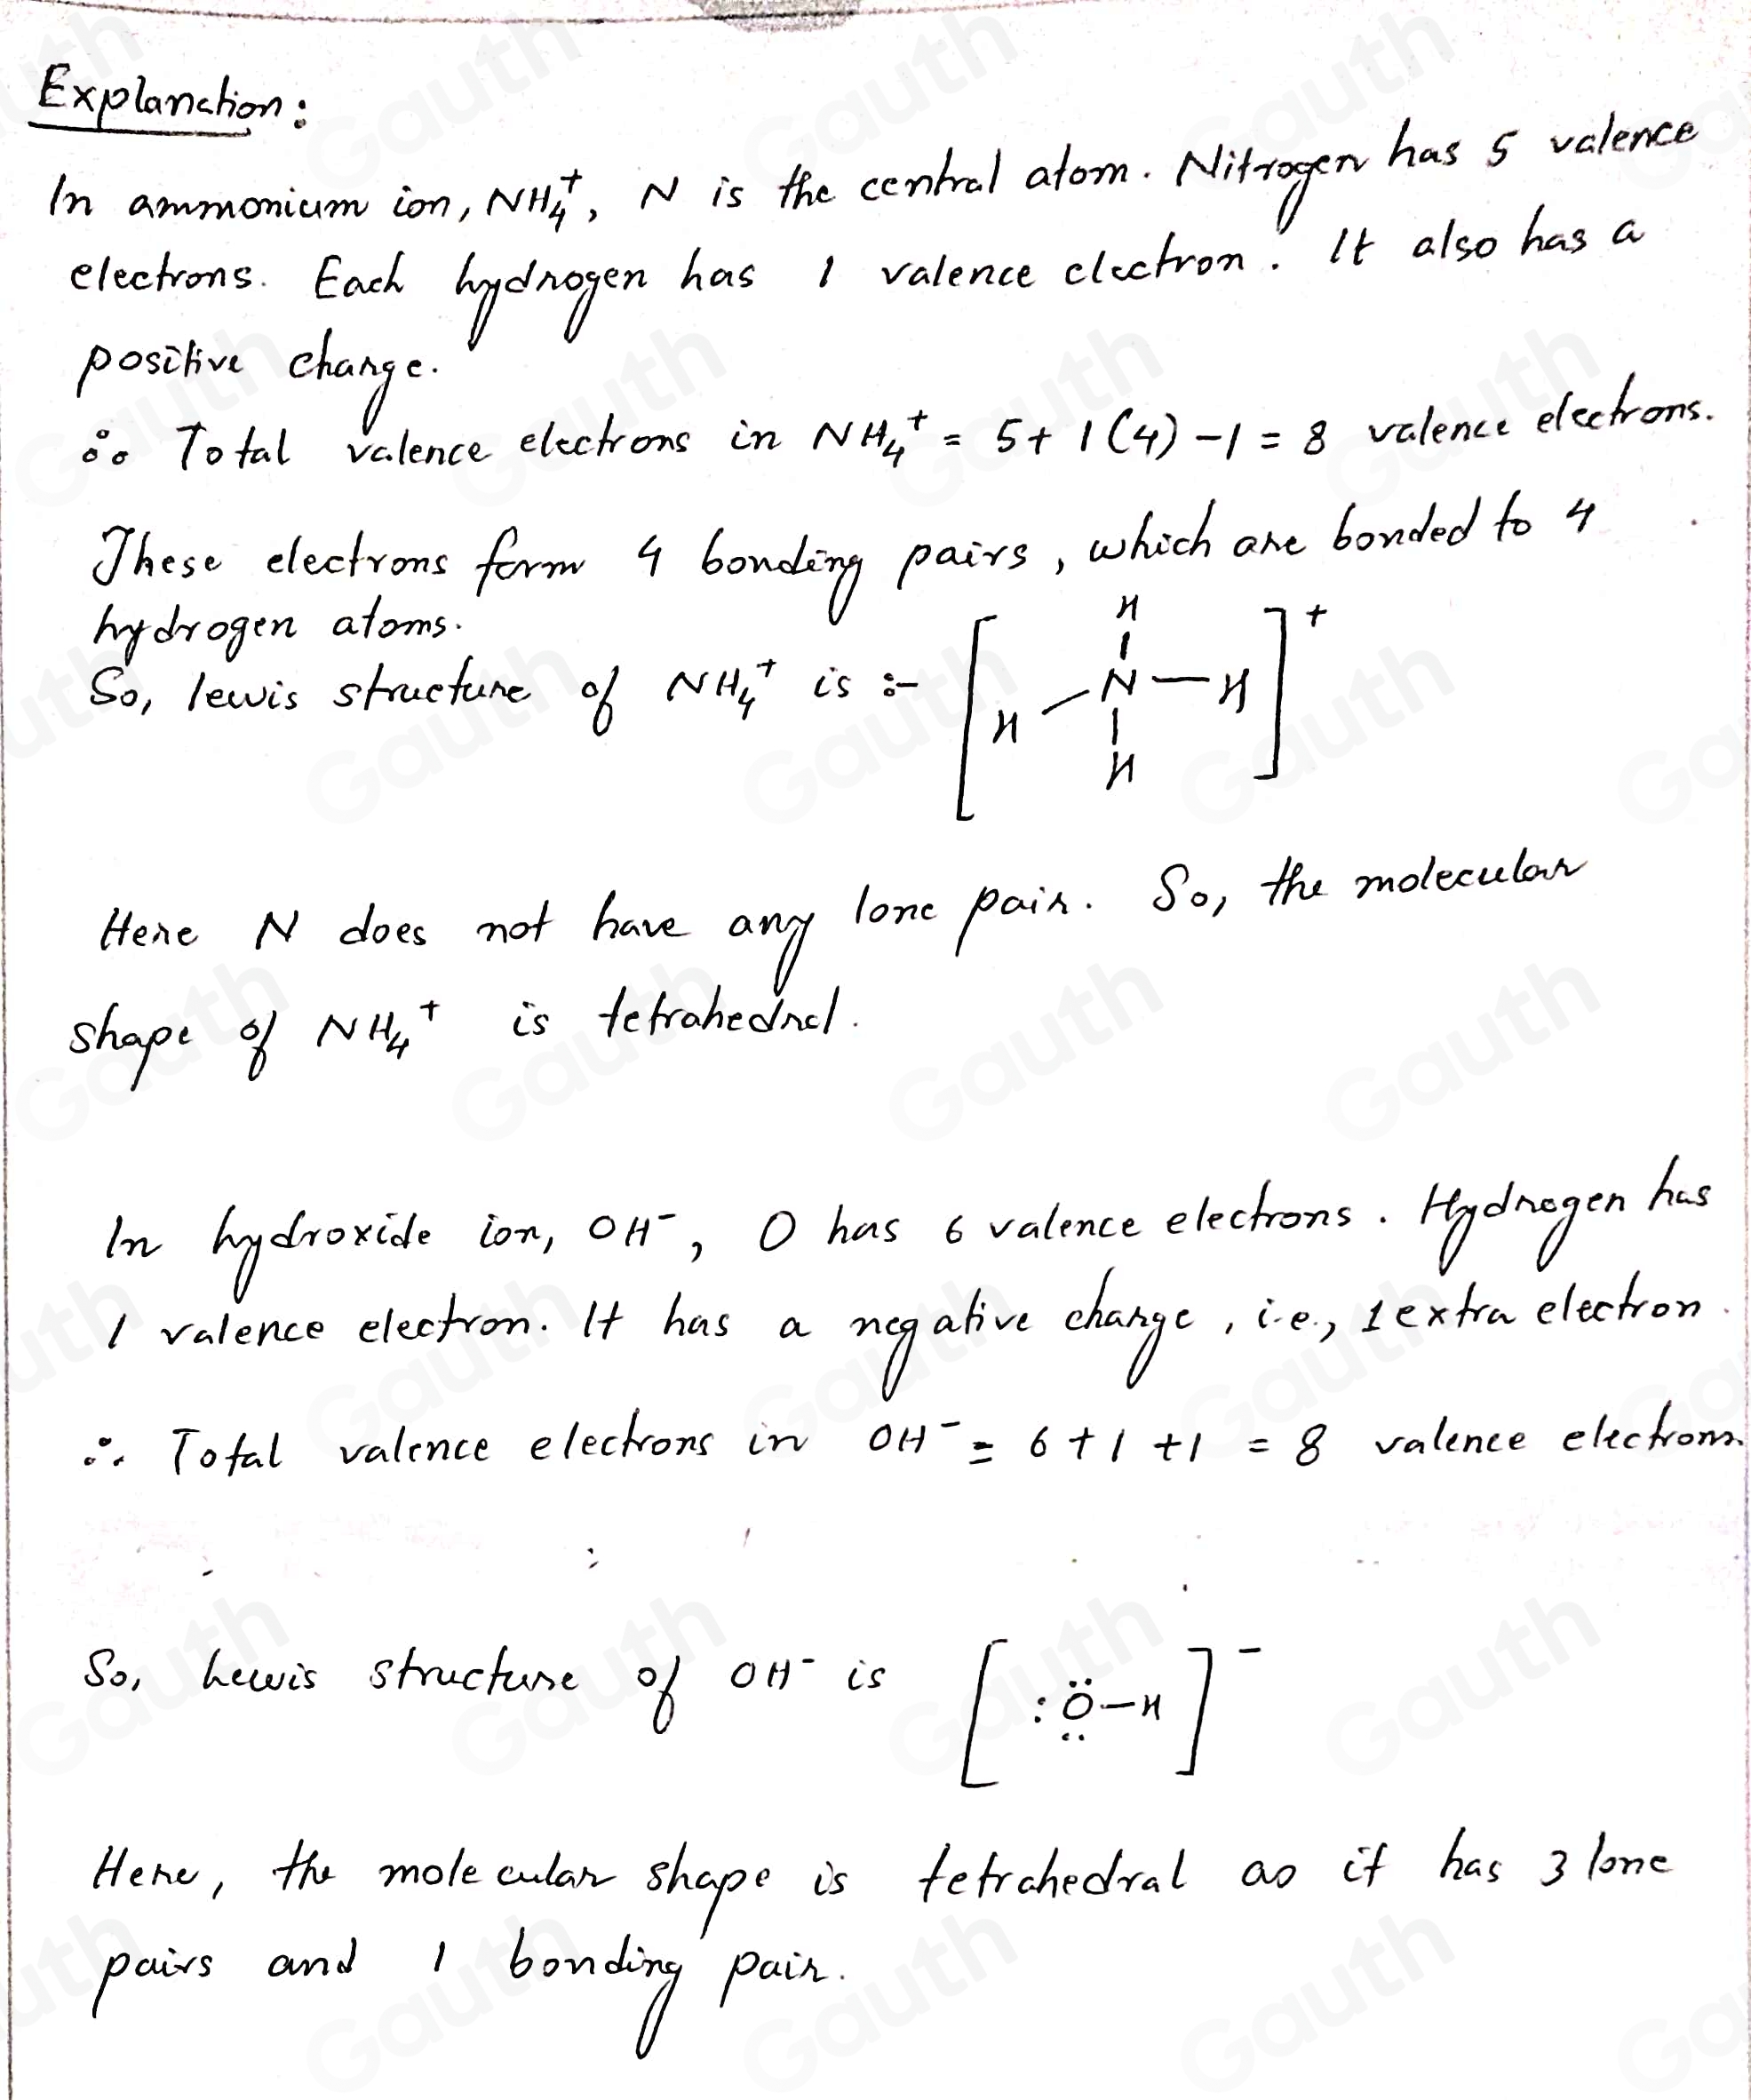 Explanation:
In ammonium ion, NH₄⁺, N is the central atom. Nitrogen has 5 valence
electrons. Each hydrogen has 1 valence electron. It also has a
positive charge.
∴ Total valence electrons in NH₄⁺ = 5+ 1(4) -1 = 8 valence electrons.
These electrons form 4 bonding pairs, which are bonded to 4
hydrogen atoms.
So, lewis structure of NH₄⁺ is :-
H
N
H
H
H
+
Here N does not have any lone pair. So, the molecular
shape of NH₄⁺ is tetrahedral.
In hydroxide ion, OH⁻, O has 6 valence electrons. Hydrogen has
1 valence electron. It has a negative charge, i.e., 1 extra electron.
∴ Total valence electrons in OH⁻ = 6 + 1 + 1 = 8 valence electrons.
So, Lewis structure of OH⁻ is [:Ö-H]⁻
Here, the molecular shape is tetrahedral as it has 3 lone
pairs and 1 bonding pair.